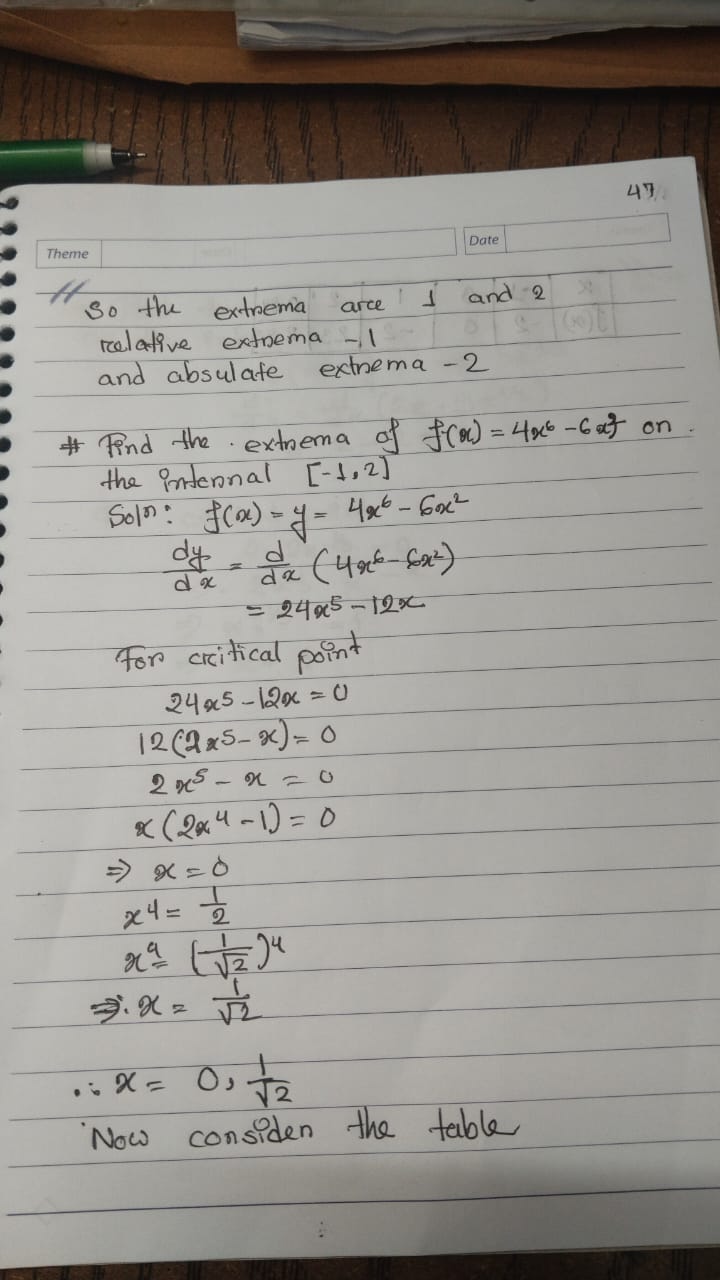 47
Theme
Date
So the extrema are 1 and 2
relative extrema -, 1
and absulate extrema - 2
# Find the extrema of f(x) = 4x⁶ - 6x² on
the internal [-1, 2]
Solⁿ: f(x) = y = 4x⁶ - 6x²
dy/dx = d/dx (4x⁶ - 6x²)
= 24x⁵ - 12x
For critical point
24x⁵ - 12x = 0
12(2x⁵ - x) = 0
2x⁵ - x = 0
x(2x⁴ - 1) = 0
⇒ x = 0
x⁴ = 1/2
x⁴ = (1/√2)⁴
⇒ x = 1/√2
∴ x = 0, 1/√2
Now consider the table